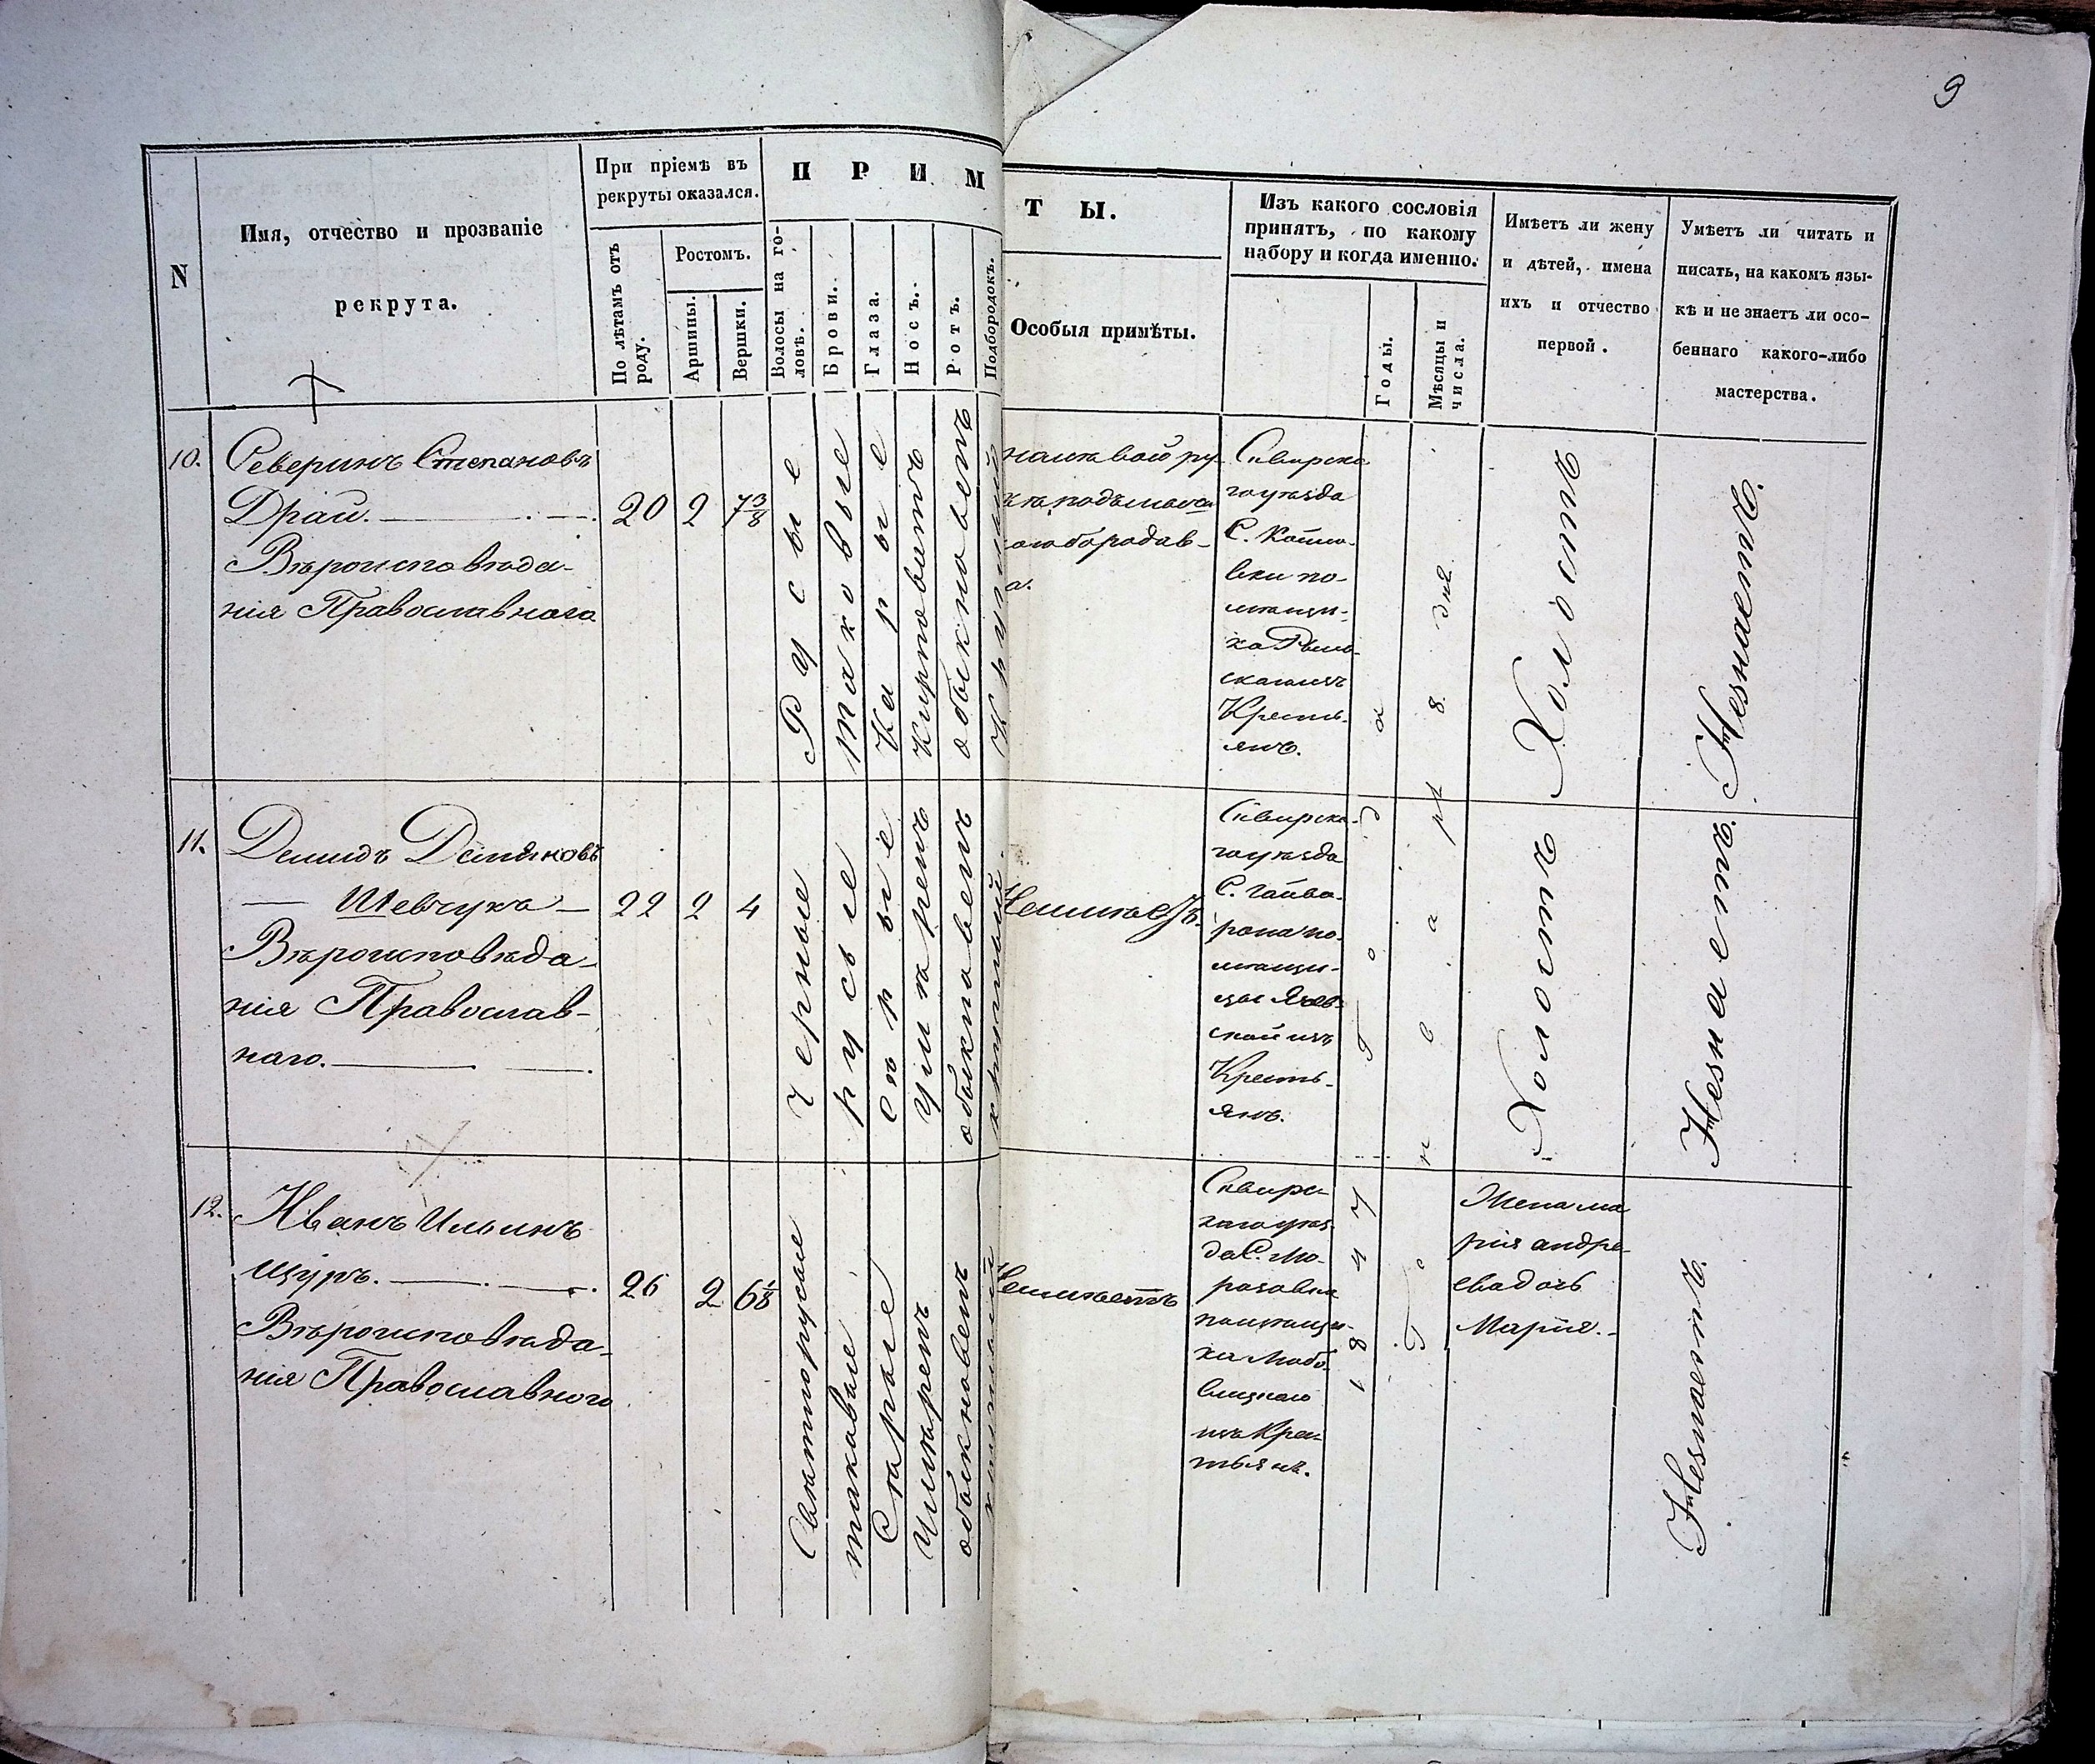 9
N
Имя, отчество и прозваніе
рекрута.
При пріемѣ въ
рекруты оказался.
По лѣтамъ отъ
роду.
Ростомъ.
Аршины.
Вершки.
П Р И М
Волосы на го-
ловѣ.
Брови.
Глаза.
Носъ.
Ротъ.
Подбородокъ.
Т Ы.
Особыя примѣты.
Изъ какого сословія
принятъ, по какому
набору и когда именно.
Годы.
Мѣсяцы и
числа.
Имѣетъ ли жену
и дѣтей, имена
ихъ и отчество
первой.
Умѣетъ ли читать и
писать, на какомъ язы-
кѣ и не знаетъ ли осо-
беннаго какого-либо
мастерства.
10.
Северинъ Степановъ
Драй.
Вѣроисповѣда-
нія Православнаго
20
2
7 3/8
Русые
таковые
Карые
обыкновенъ
налѣвой ру
бородав-
а.
Сквирска
гоуѣзда
по-
мѣщи-
Кресть-
янъ.
Холостъ
Незнаетъ.
11.
Демидъ
Шевчукъ
Вѣроисповѣда-
нія Православ-
наго.
22
2
4
Черные
русые
Сѣрые
Умѣренъ
обыкновенъ
круглый
Неимѣетъ.
Сквирска-
гоуѣзда
С. Гайво-
рона по-
мѣщи-
цы
ской изъ
Кресть-
янъ.
Холостъ
Незнаетъ.
12.
Иванъ Ильинъ
Щуръ.
Вѣроисповѣда-
нія Православного
26
2
6 1/8
Свѣтлорусые
таковые
Сѣрые
Умѣренъ
обыкновенъ
Неимѣетъ
Сквирс-
каго уѣз-
да С. Мо-
розовки
помѣщи-
ка
изъ Крес-
тьянъ.
1847 Года
8. дня
Жена Ма
рія Андре-
ева дочь
Марія.
Незнаетъ.